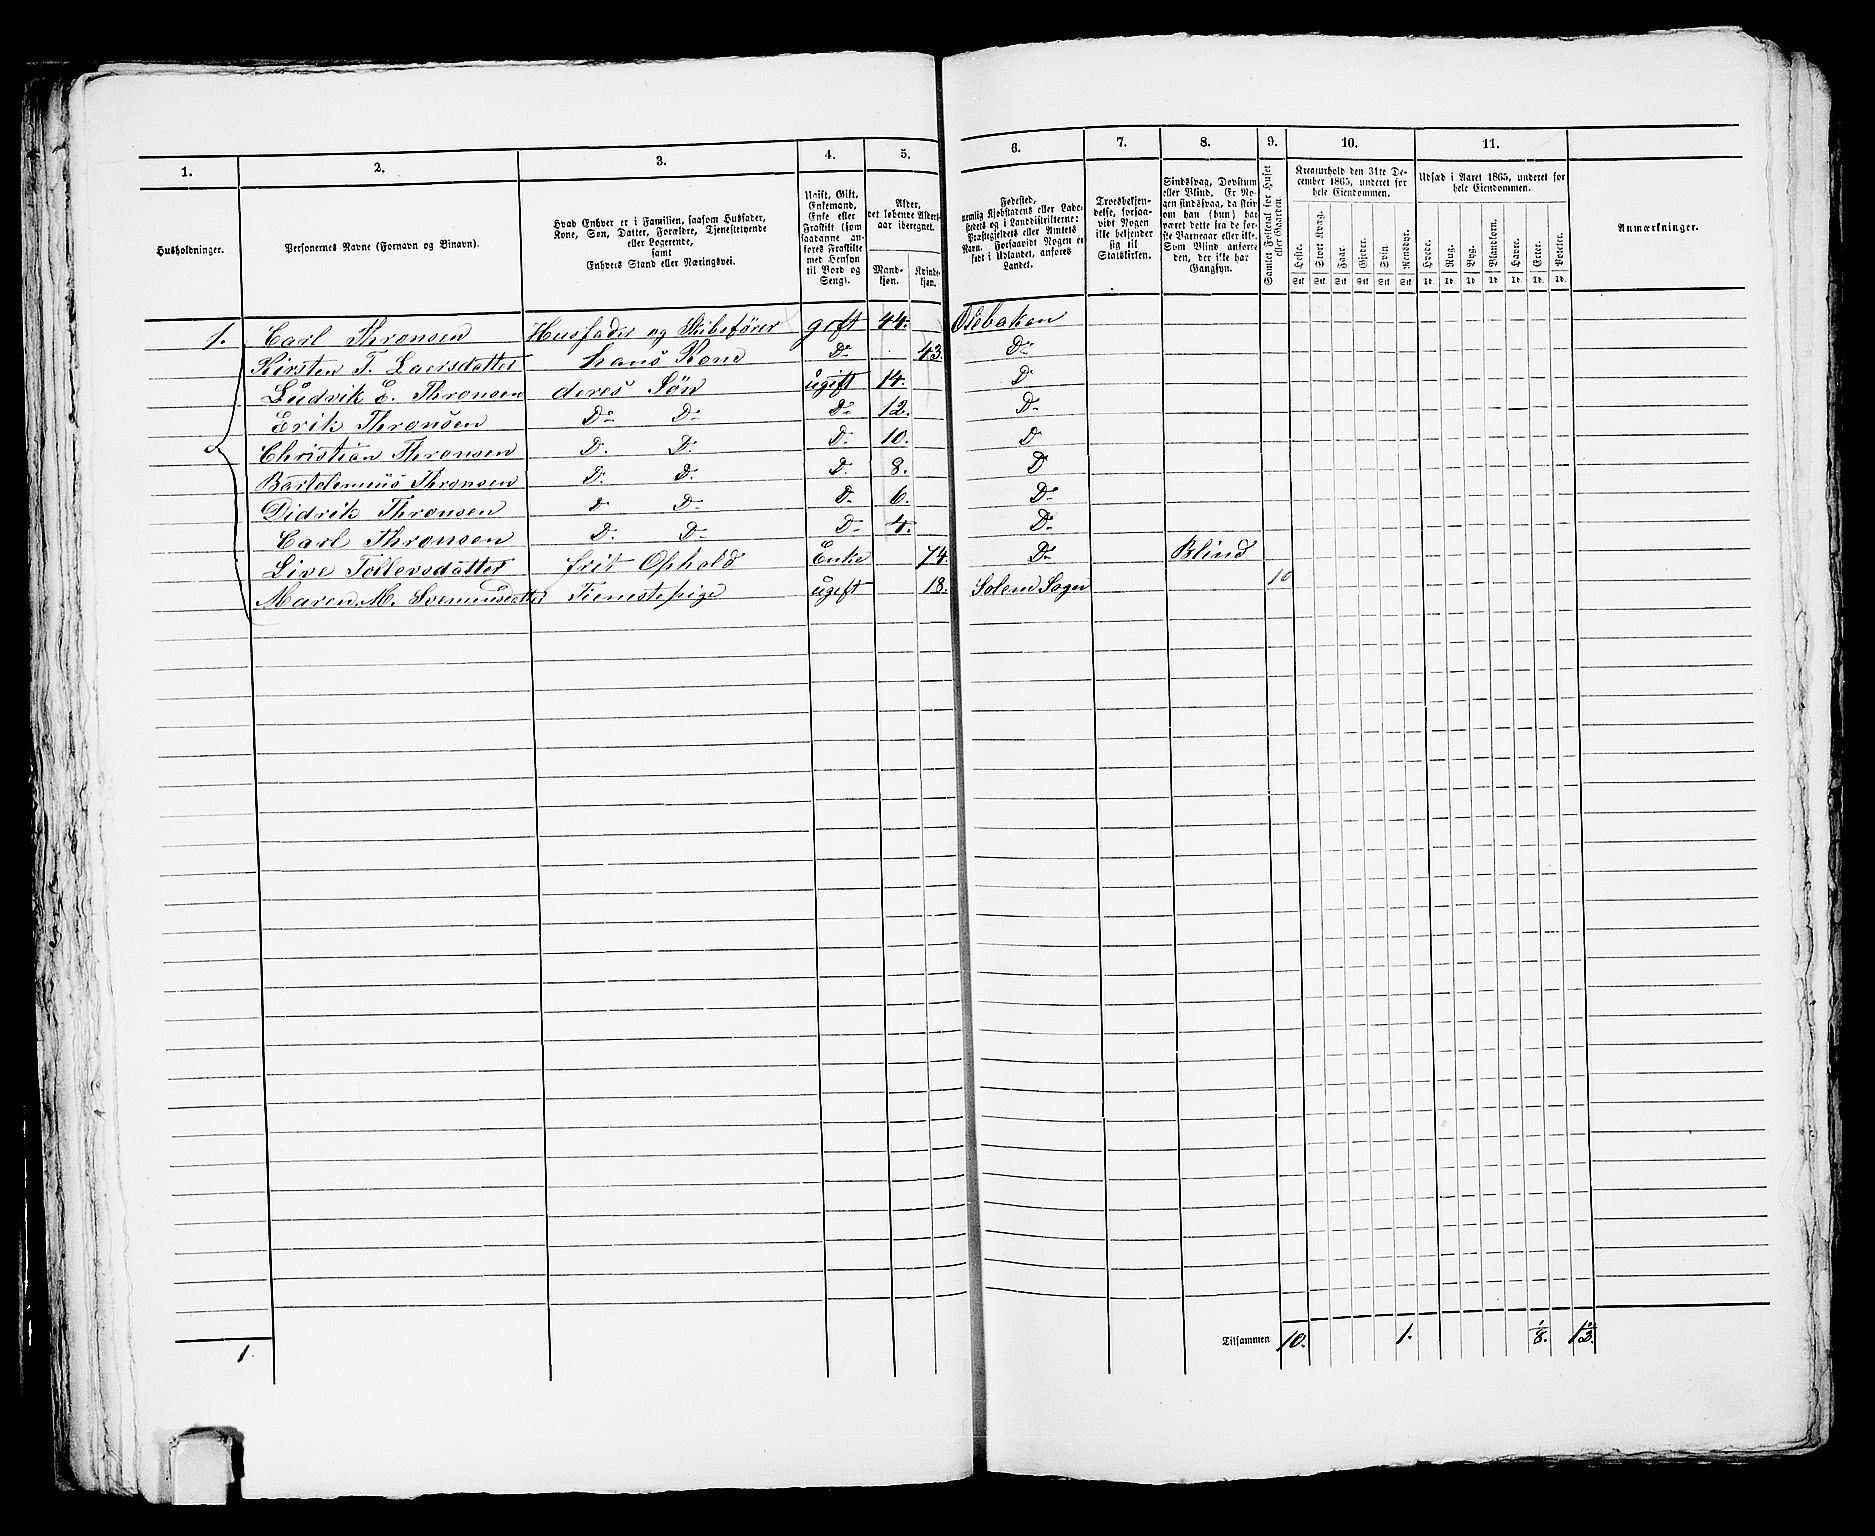 1. 2. 3. 4. 5. 6. 7. 8. 9. 10. 11.
Husholdninger.
Personernes Navne (Fornavn og Binavn).
Hvad Enhver er i Familien, saasom Husfader,
Kone, Søn, Datter, Forældre, Tjenestetyende
eller Logerende,
samt
Enhvers Stand eller Næringsvei.
Ugift, Gift,
Enkemand,
Enke eller
Fraskilt (som
saadanne an-
føres Fraskilte
med Hensyn
til Bord og
Seng).
Alder,
det løbende Alders-
aar iberegnet.
Mand-
kjøn.
Kvinde-
kjøn.
Fødested,
nemlig Kjøbstadens eller Lade-
stedets og i Landdistrikterne:
Præstegjeldets eller Amtets
Navn. Forsaavidt Nogen er
født i Udlandet, anføres
Landet.
Troesbekjen-
delse, forsaa-
vidt Nogen
ikke bekjender
sig til
Statskirken.
Sindssvag, Døvstum
eller Blind. Er No-
gen sindssvag, da skriv
om han (hun) har
været dette fra de før-
ste Barneaar eller ikke.
Som Blind anføres
den, der ikke har
Gangsyn.
Samlet Folketal for Huset
eller Gaarden.
Kreaturhold den 31te De-
cember 1865, underet for
hele Eiendommen.
Heste. Stort Kvæg. Faar. Gjeder. Svin. Rensdyr.
Stk Stk Stk Stk Stk Stk
Udsæd i Aaret 1865, underet for
hele Eiendommen.
Hvede. Rug. Byg. Blandkorn. Havre. Erter. Poteter.
Td. Td. Td. Td. Td. Td. Td.
Anmærkninger.
1. Carl Thronsen Husfader og Skibsfører gift 44. Osebaken
Kirsten T. Laersdatter hans Kone Do 43. Do
Ludvik E. Thronsen deres Søn ugift 14. D
Erik Thronsen Do Do Do 12. D.
Christian Thronsen D. D. D. 10. D
Bartolemeus Thronsen D. D. D. 8. D
Didrik Thronsen D D. D. 6. D.
Carl Thronsen D. D. D. 4. D.
Live Tollevsdatter frit Ophold Enke 74. D. Blind
Maren M. Svennusdatter Tienestepige ugift 18. Solem Sogn 10
1. Tilsammen 10. 1. 1/8. 1 1/3.